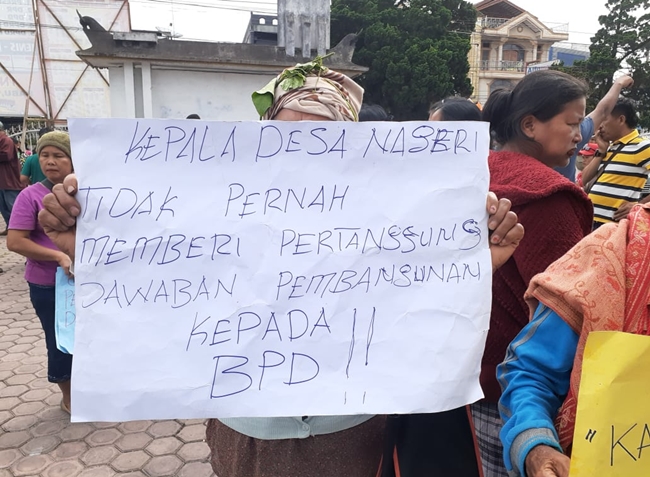 KEPALA DESA NAGERI
TIDAK PERNAH
MEMBERI PERTANGGUNG
JAWABAN PEMBANGUNAN
KEPADA
BPD !!
"KA